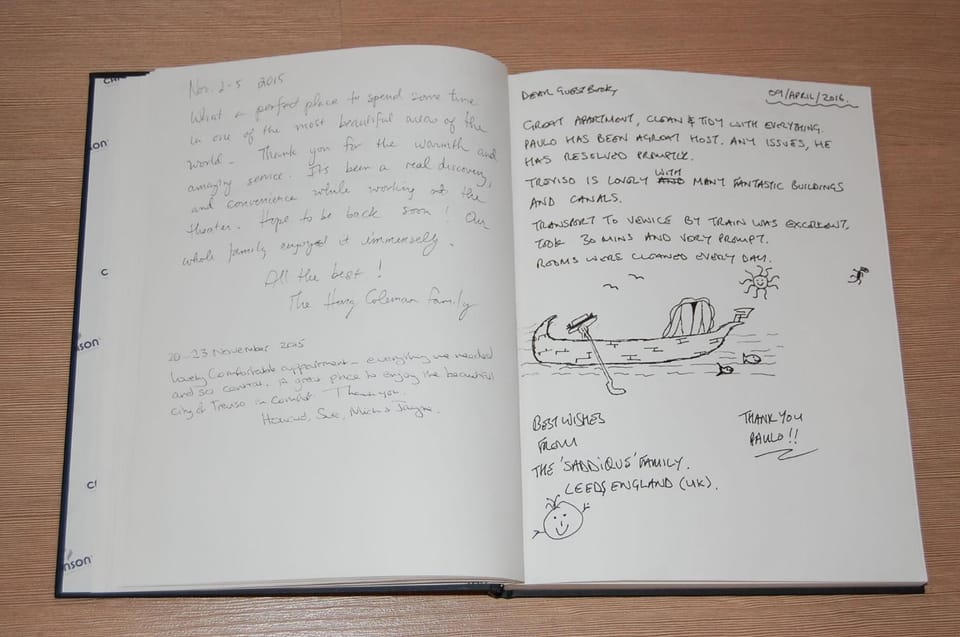 Nov. 2-5 2015
What a perfect place to spend some time
in one of the most beautiful areas of the
world. Thank you for the warmth and
amazing service. It's been a real discovery,
and convenience while working at the
theater. Hope to be back soon! Our
whole family enjoyed it immensely.
All the best!
The Coleman family
20-23 November 2015
Lovely comfortable appartment - everything we needed
and so central. A great place to enjoy the beautiful
city of Treviso in comfort. Thank you
Howard, Sue,
DEAR GUEST BOOK,
09/APRIL/2016.
GREAT APARTMENT, CLEAN & TIDY WITH EVERYTHING.
PAULO HAS BEEN A GREAT HOST. ANY ISSUES, HE
HAS RESOLVED PROMPTLY.
TREVISO IS LOVELY WITH MANY FANTASTIC BUILDINGS
AND CANALS.
TRANSPORT TO VENICE BY TRAIN WAS EXCELLENT.
TOOK 30 MINS AND VERY PROMPT.
ROOMS WERE CLEANED EVERY DAY.
BEST WISHES
FROM
THE 'SADDIQUS' FAMILY.
LEEDS, ENGLAND (UK).
THANK YOU
PAULO!!